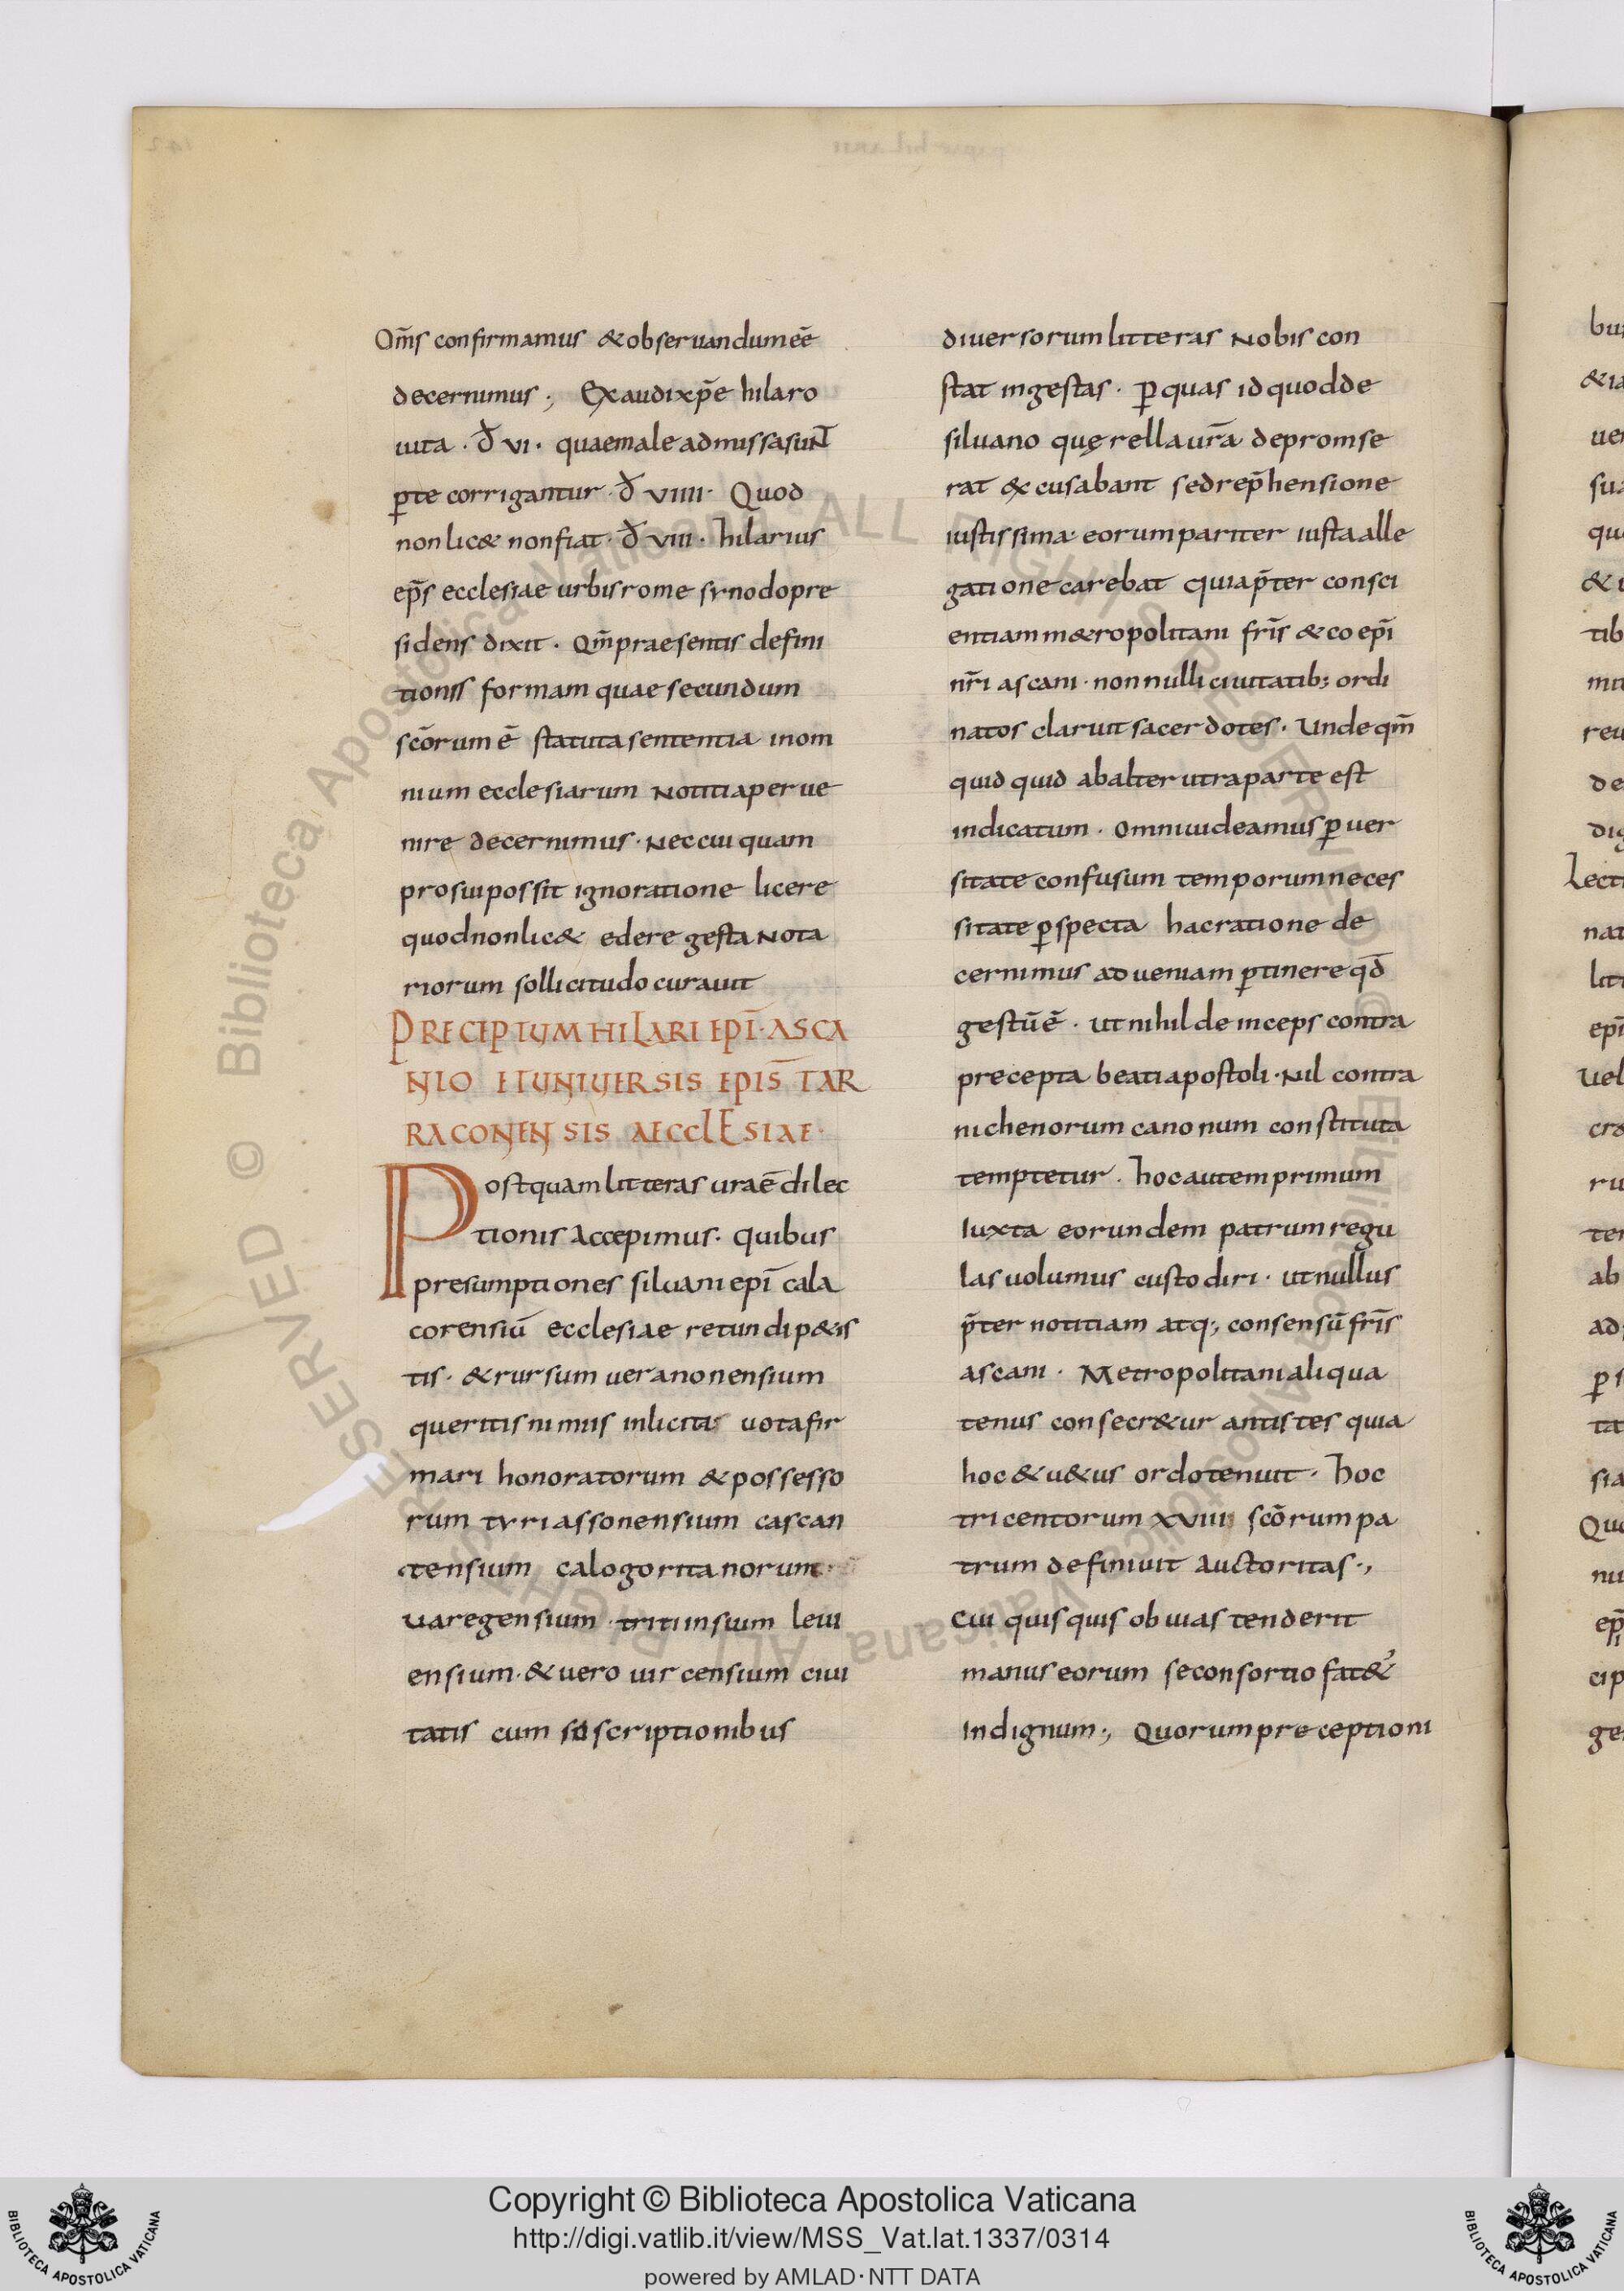 Om̄s confirmamus & obseruandum eē
decernimus ; Exaudi xpē hilaro
uita · đ vi · quae male admissa sunt
ꝑ te corrigantur · đ viiii · Quod
non lic& non fiat · đ viii · hilarius
ep̄s ecclesiae urbis rome synodo pre
sidens dixit · Qm̄ praesentis defini
tionis formam quae secundum
scōrum ē statuta sententia in om
nium ecclesiarum notitia perue
nire decernimus · nec cuiquam
pro sui possit ignoratione licere
quod non lic& edere gesta nota
riorum sollicitudo curauit
PRECEPTUM HILARI EPĪ · ASCA
NIO ET UNIUERSIS EPIS̄ TAR
RACONENSIS AECCLESIAE ·
Postquam litteras uraē dilec
tionis accepimus · quibus
presumptiones siluani epī cala
corensiū ecclesiae retundi p&is
tis · & rursum ueranonensium
queritis nimiis inlicita uota fir
mari honoratorum & possesso
rum tyriassonensium cascan
tensium calogoritanorum ·
uaregensium · tritiinsium leui
ensium · & uero uircensium ciui
tatis cum suscriptionibus
diuersorum litteras nobis con
stat ingestas · ꝑ quas id quod de
siluano quęrella ur̄a depromse
rat & cusabant sed rep̄hensione
iustissima eorum pariter iusta alle
gatione carebat quia p̄ter consci
entiam m&ropolitani frīs & coepī
nr̄i ascani · nonnulli ciuitatib; ordi
natos claruit sacerdotes · Unde qm̄
quidquid ab alterutra parte est
indicatum · omni uideamus ꝑuer
sitate confusum temporum neces
sitate ꝑspecta hac ratione de
cernimus ad ueniam ꝑtinere qđ
gestū ē · ut nihil deinceps contra
precepta beati apostoli · nil contra
nichenorum canonum constituta
temptetur · hoc autem primum
iuxta eorundem patrum regu
las uolumus custodiri · ut nullus
p̄ter notitiam atq; consensū frīs
ascani · Metropolitani aliqua
tenus consecr&ur antistes quia
hoc & u&us ordo tenuit · hoc
tricentorum xviii scōrum pa
trum definiuit auctoritas ·,
Cui quisquis obuias tenderit
manus eorum se consortio fat&'
indignum ·, Quorum preceptioni
Copyright © Biblioteca Apostolica Vaticana
http://digi.vatlib.it/view/MSS_Vat.lat.1337/0314
powered by AMLAD·NTT DATA